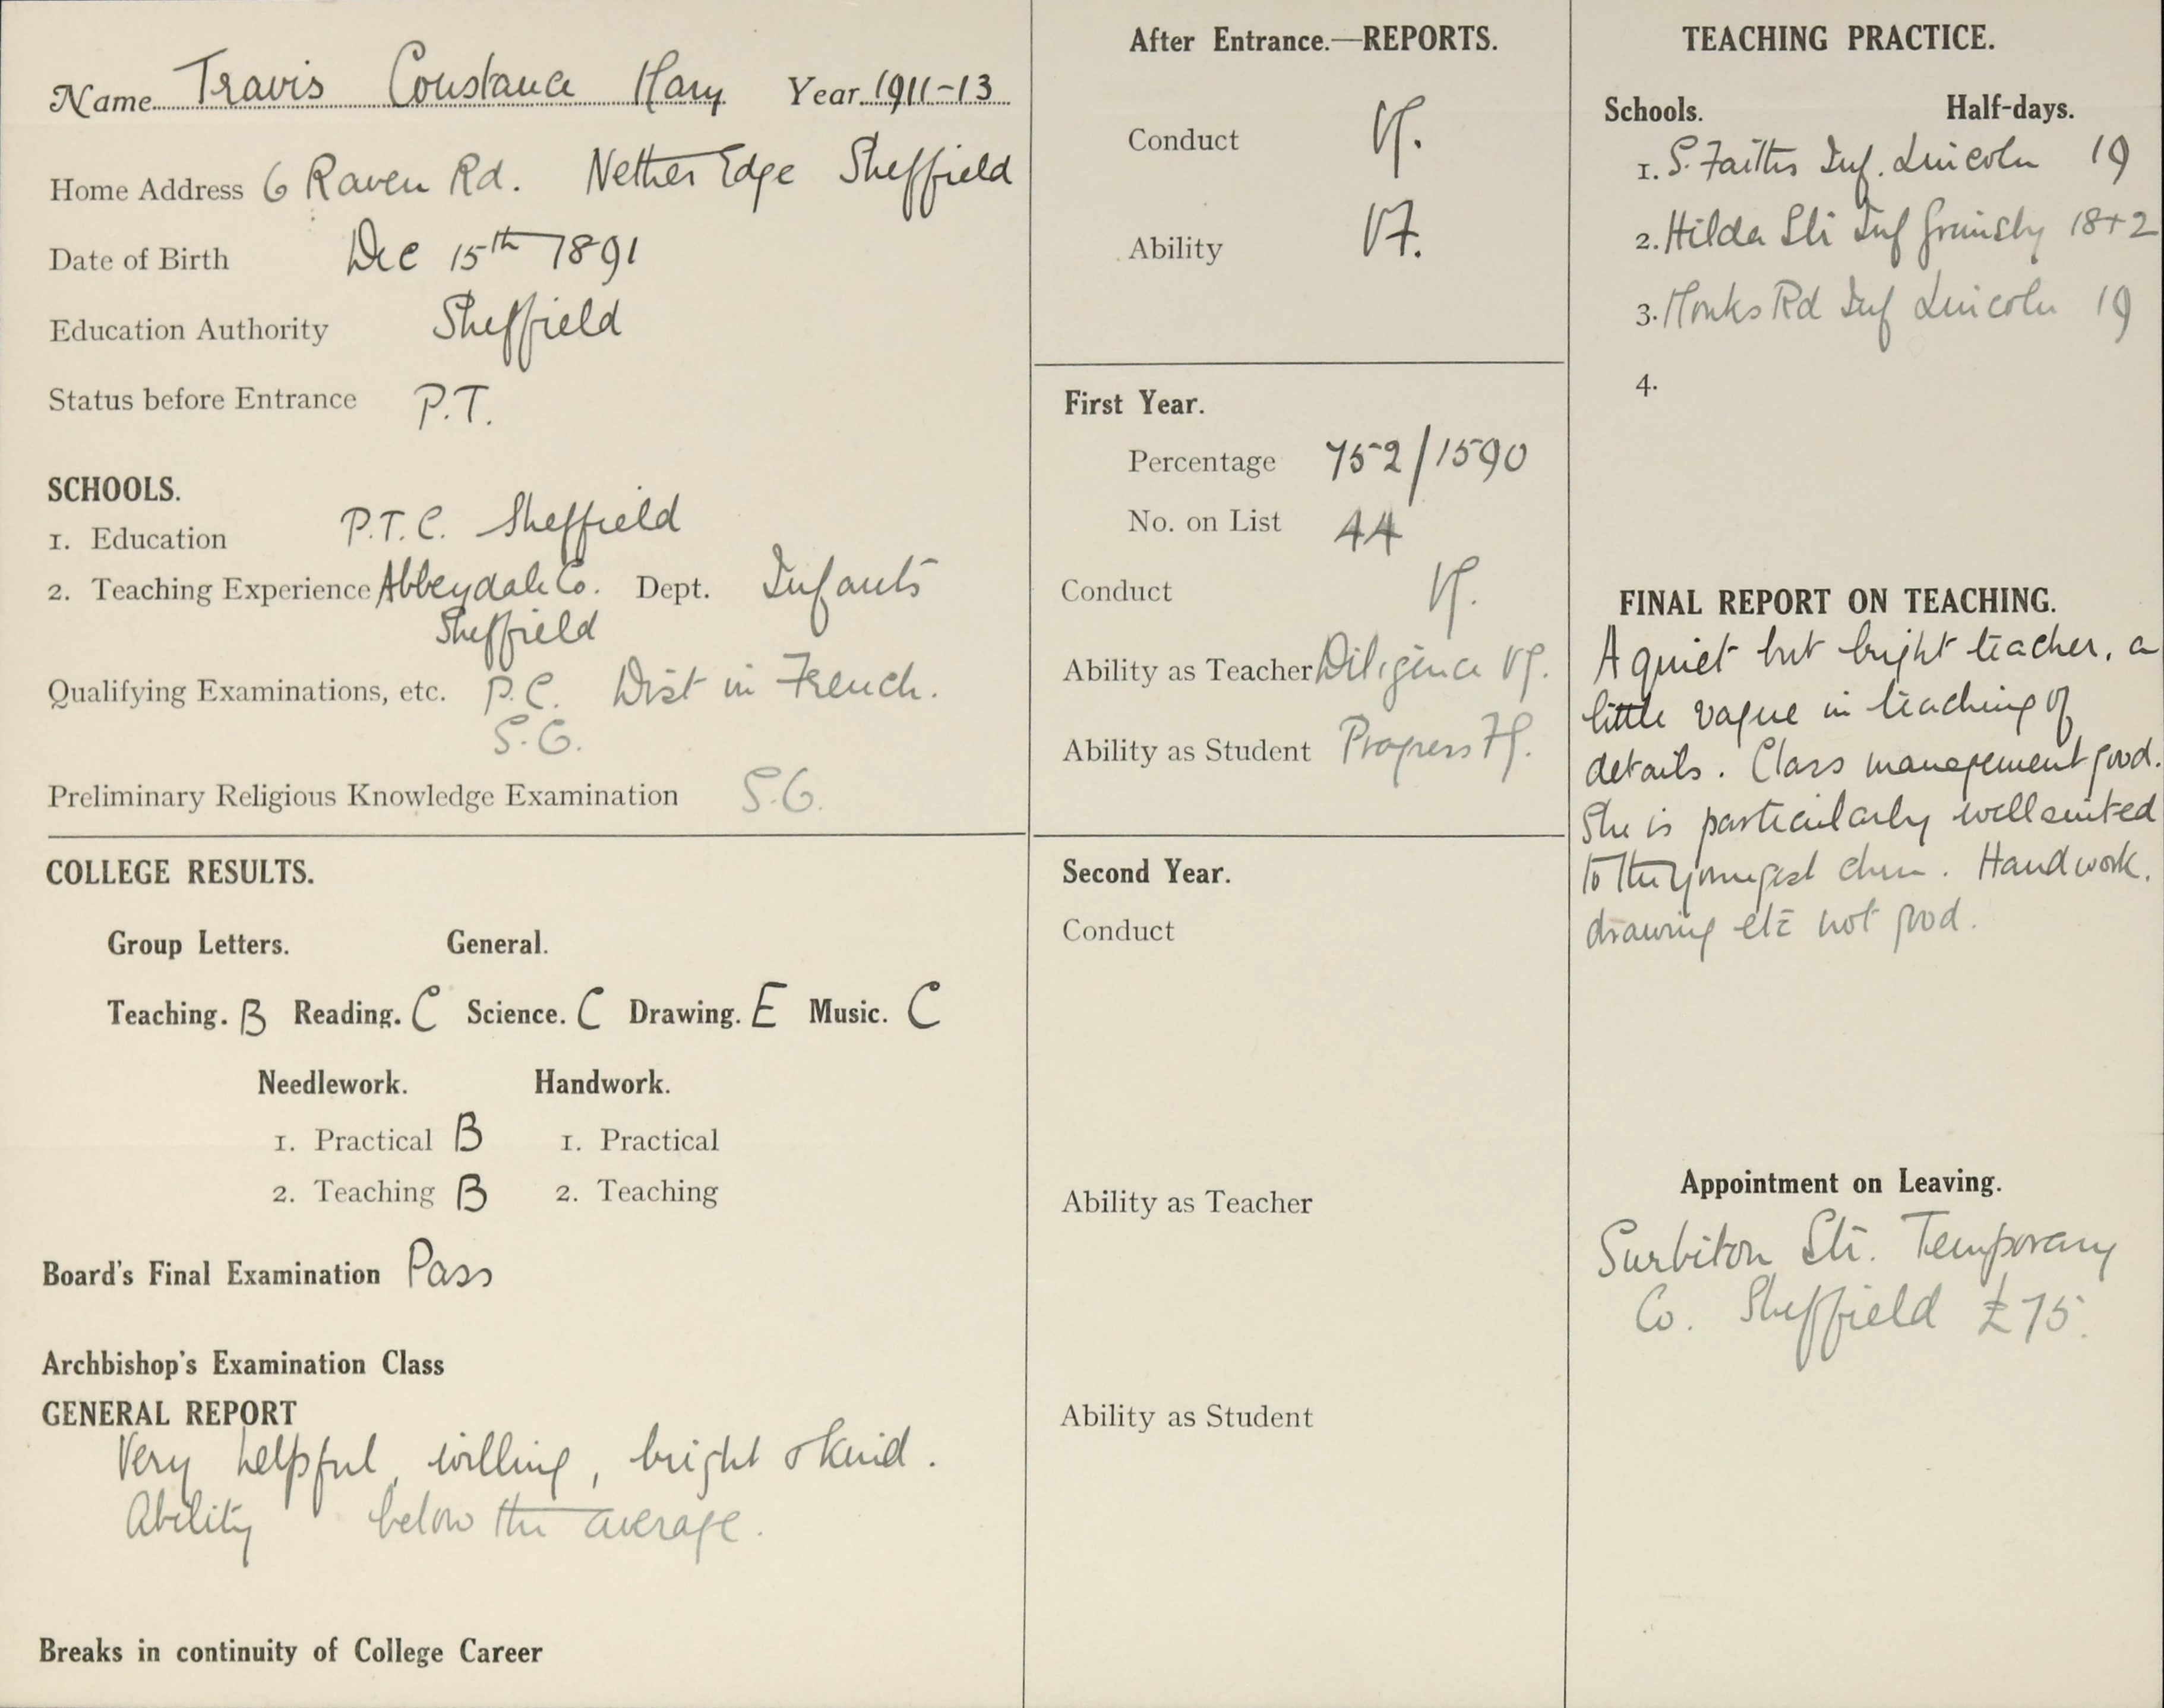 Name Travis Constance Mary Year 1911-13
Home Address 6 Raven Rd. Nether Edge Sheffield
Date of Birth Dec 15th 1891
Education Authority Sheffield
Status before Entrance P.T.
SCHOOLS.
1. Education P.T.C. Sheffield
2. Teaching Experience Abbeydale Co. Dept. Infants
Sheffield
Qualifying Examinations, etc. P.C. Dist in French.
S.G.
Preliminary Religious Knowledge Examination S.G.
COLLEGE RESULTS.
Group Letters. General.
Teaching. B Reading. C Science. C Drawing. E Music. C
Needlework. Handwork.
1. Practical B 1. Practical
2. Teaching B 2. Teaching
Board's Final Examination Pass
Archbishop's Examination Class
GENERAL REPORT
Very helpful, willing, bright & kind.
Ability below the average.
Breaks in continuity of College Career
After Entrance.—REPORTS.
Conduct VG.
Ability VF.
First Year.
Percentage 752/1590
No. on List 44
Conduct VG.
Ability as Teacher Diligence VG.
Ability as Student Progress FG.
Second Year.
Conduct
Ability as Teacher
Ability as Student
TEACHING PRACTICE.
Schools. Half-days.
1. S. Faiths Inf. Lincoln 19
2. Hilda St Inf Grimsby 18+2
3. Monks Rd Inf Lincoln 19
4.
FINAL REPORT ON TEACHING.
A quiet but bright teacher, a
little vague in teaching of
details. Class management good.
She is particularly well suited
to the youngest chn. Handwork,
drawing etc not good.
Appointment on Leaving.
Surbiton St. Temporary
Co. Sheffield £75.